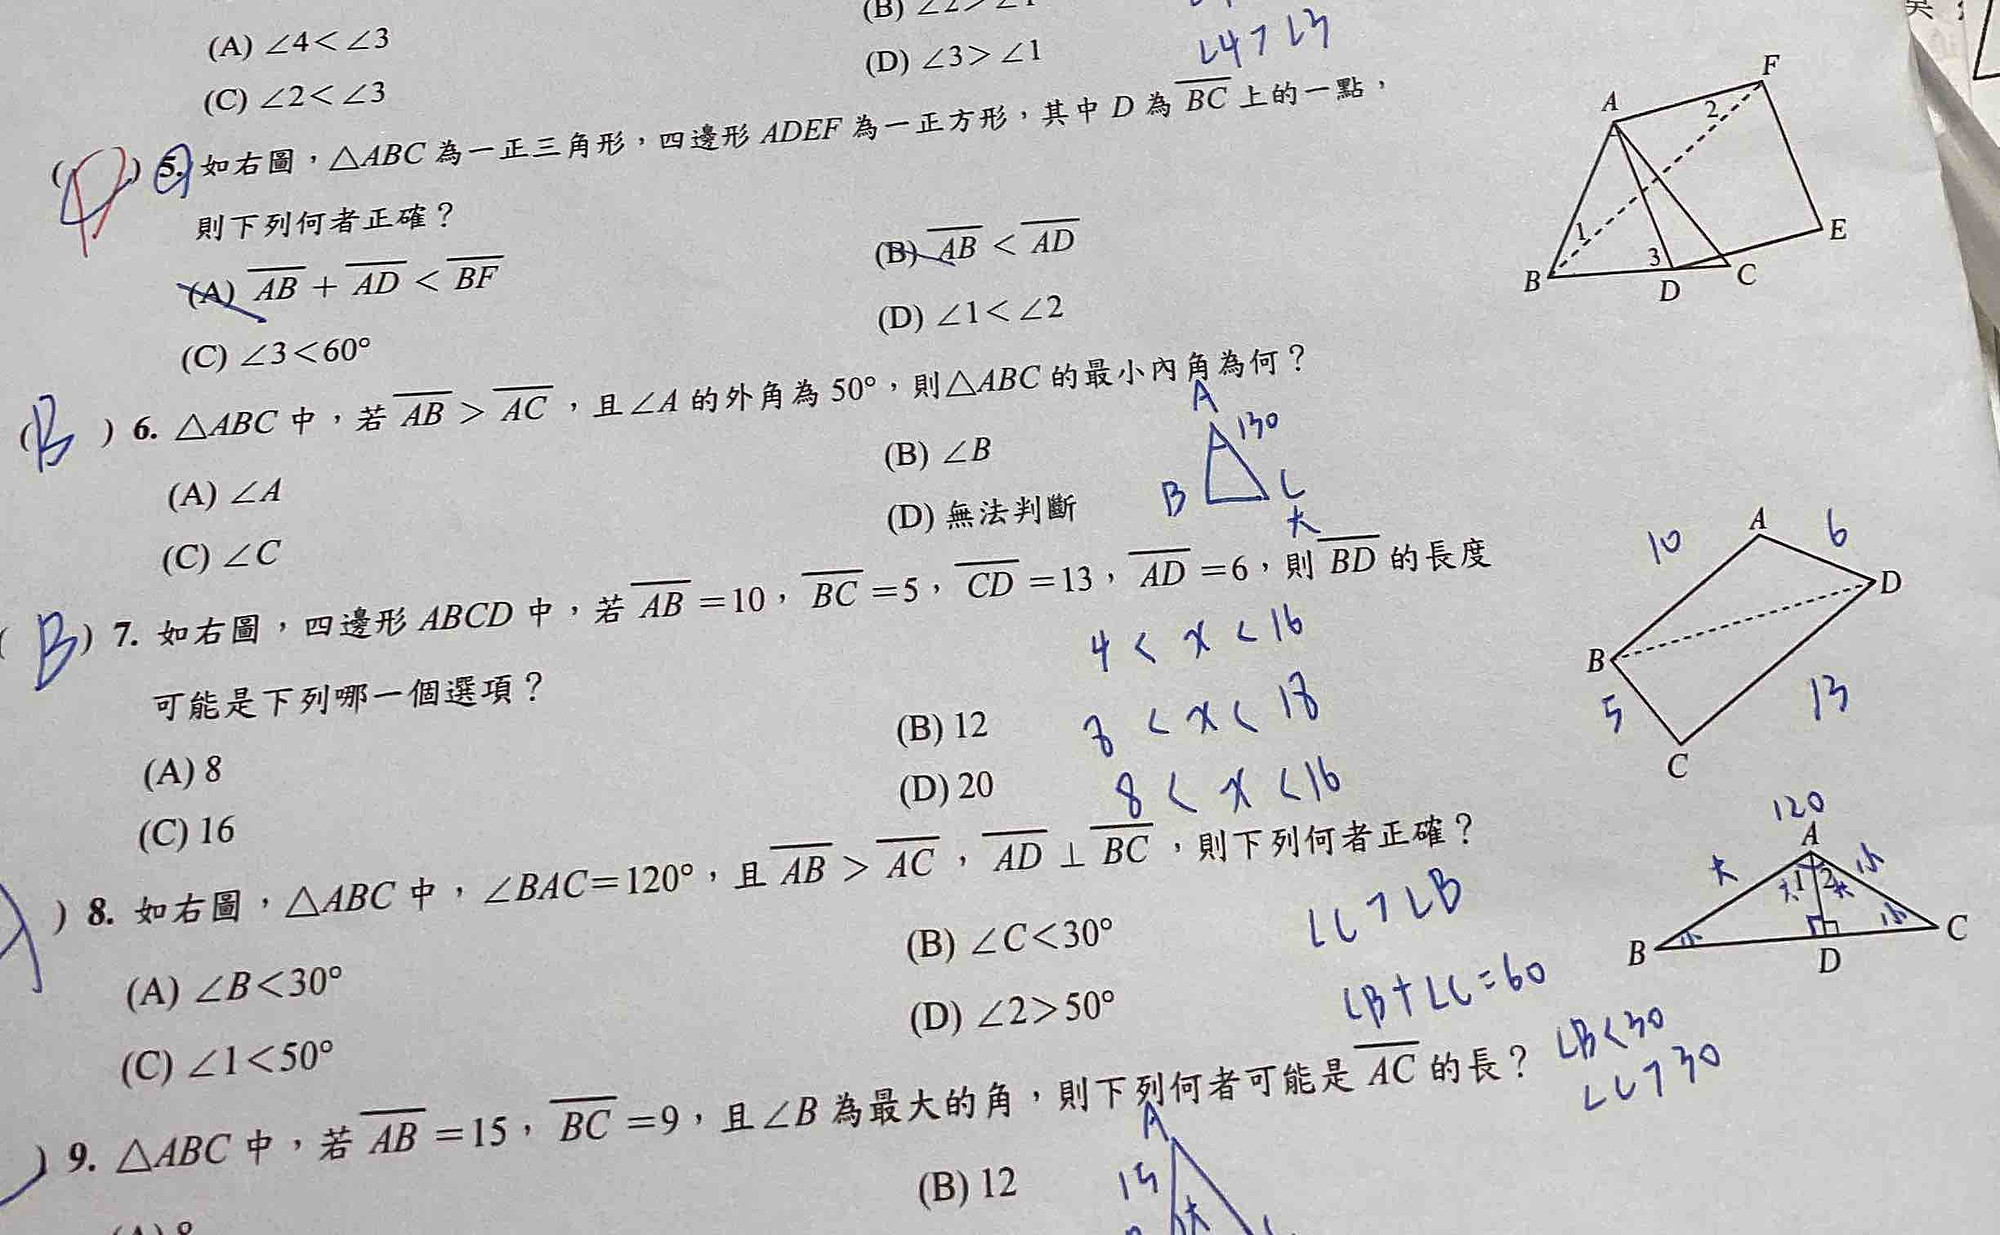 (A) ∠4<∠3
(C) ∠2<∠3
(D) ∠3>∠1
∠4>∠3
5. 如右圖，△ABC 為一正三角形，四邊形 ADEF 為一正方形，其中 D 為 BC 上的一點，
則下列何者正確？
(A) AB + AD < BF
(B) AB < AD
(C) ∠3<60°
(D) ∠1<∠2
A
F
2
1
3
B
D
C
E
( B ) 6. △ABC 中，若 AB > AC，且∠A 的外角為 50°，則△ABC 的最小內角為何？
(A) ∠A
(B) ∠B
(C) ∠C
(D) 無法判斷
A
130
B
C
大
( B ) 7. 如右圖，四邊形 ABCD 中，若 AB =10，BC =5，CD =13，AD =6，則 BD 的長度
可能是下列哪一個選項？
(A) 8
(B) 12
(C) 16
(D) 20
4 < x < 16
8 < x < 18
8 < x < 16
10
A
6
D
B
5
13
C
) 8. 如右圖，△ABC 中，∠BAC=120°，且 AB > AC，AD ⊥ BC，則下列何者正確？
(A) ∠B<30°
(B) ∠C<30°
(C) ∠1<50°
(D) ∠2>50°
∠C>∠B
∠B+∠C=60
∠B<30
∠C>30
120
A
大
小
大 1 2 大
小
小
B
D
C
) 9. △ABC 中，若 AB =15，BC =9，且∠B 為最大的角，則下列何者可能是 AC 的長？
(B) 12
A
15
大